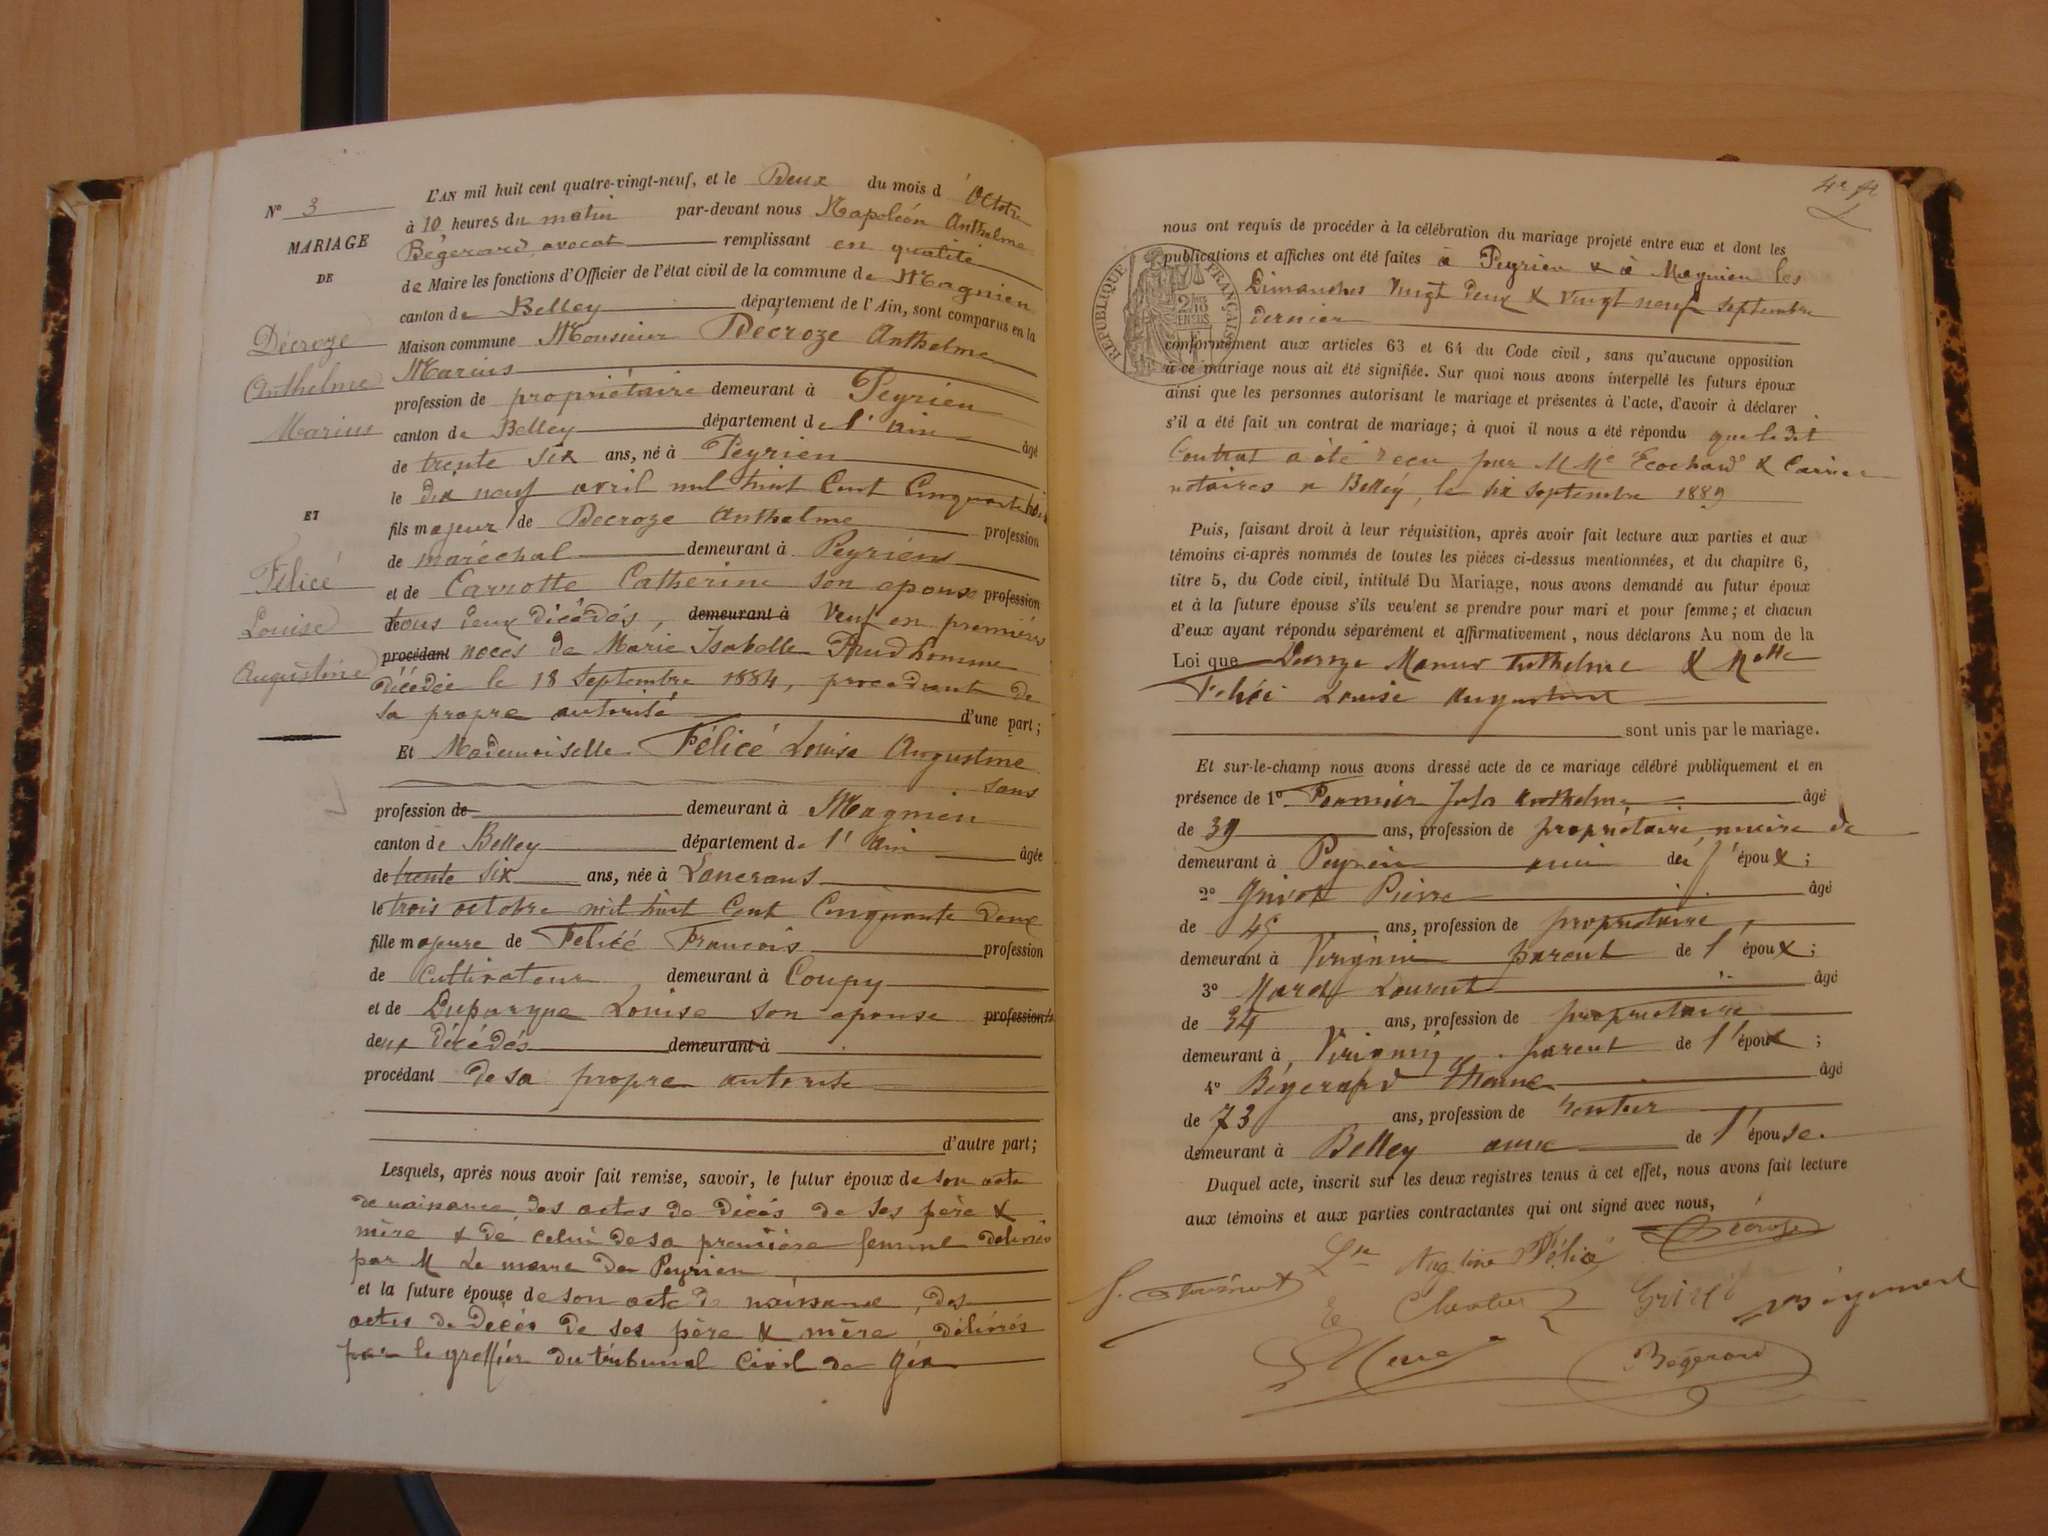 N° 3
MARIAGE
DE
Décroze
Anthelme
Marius
ET
Félicé
Louise
Augustine
L'AN mil huit cent quatre-vingt-neuf, et le Deux du mois d'Octobre
à 10 heures du matin par-devant nous Napoléon Anthelme
Bégerard, avocat remplissant en qualité
de Maire les fonctions d'Officier de l'état civil de la commune de Magnieu
canton de Belley département de l'Ain, sont comparus en la
Maison commune Monsieur Décroze Anthelme
Marius
profession de propriétaire demeurant à Peyrieu
canton de Belley département de l'Ain âgé
de trente six ans, né à Peyrieu
le dix neuf avril mil huit Cent Cinquante trois
fils majeur de Decroze Anthelme profession
de maréchal demeurant à Peyrieu
et de Carrotte Catherine son epouse profession
tous deux décédés, demeurant à Veuf en premières
procédant noces de Marie Isabelle Prudhomme
décédée le 18 Septembre 1884, procedant de
sa propre autorité d'une part;
Et Mademoiselle Félicé Louise Augustine
sans
profession de demeurant à Magnieu
canton de Belley département de l'Ain âgée
de trente six ans, née à Lancrans
le trois octobre mil huit Cent Cinquante deux
fille majeure de Félicé François profession
de cultivateur demeurant à Coupy
et de Duparque Louise son epouse profession
deux Décédés demeurant à
procédant de sa propre autorité
d'autre part;
Lesquels, après nous avoir fait remise, savoir, le futur époux de son acte
de naissance des actes de décès de ses père &
mère & de celui de sa première femme délivrés
par M Le maire de Peyrieu
et la future épouse de son acte de naissance, des
actes de Décès de ses père & mère, délivrés
par le greffier du tribunal Civil de Gex
nous ont requis de procéder à la célébration du mariage projeté entre eux et dont les
publications et affiches ont été faites à Peyrieu & à Magnieu les
Dimanches Vingt deux & Vingt neuf septembre
dernier
RÉPUBLIQUE FRANÇAISE
conformément aux articles 63 et 64 du Code civil, sans qu'aucune opposition
à ce mariage nous ait été signifiée. Sur quoi nous avons interpellé les futurs époux
ainsi que les personnes autorisant le mariage et présentes à l'acte, d'avoir à déclarer
s'il a été fait un contrat de mariage; à quoi il nous a été répondu que le dit
Contrat a été reçu par M Me Ecochard &
notaires a Belley, le six septembre 1889
Puis, faisant droit à leur réquisition, après avoir fait lecture aux parties et aux
témoins ci-après nommés de toutes les pièces ci-dessus mentionnées, et du chapitre 6,
titre 5, du Code civil, intitulé Du Mariage, nous avons demandé au futur époux
et à la future épouse s'ils veulent se prendre pour mari et pour femme; et chacun
d'eux ayant répondu séparément et affirmativement, nous déclarons Au nom de la
Loi que Decroze Marius Anthelme & Melle
Félicé Louise Augustine
sont unis par le mariage.
Et sur-le-champ nous avons dressé acte de ce mariage célébré publiquement et en
présence de 1° Jules Anthelme âgé
de 39 ans, profession de propriétaire, maire de
demeurant à Peyrieu ami de l'époux;
2° Grivot Pierre âgé
de 45 ans, profession de propriétaire,
demeurant à Virignin parent de l'époux;
3° Laurent âgé
de ans, profession de propriétaire
demeurant à Virignin parent de l'époux;
4° Bégerard âgé
de 73 ans, profession de rentier
demeurant à Belley de l'épouse.
Duquel acte, inscrit sur les deux registres tenus à cet effet, nous avons fait lecture
aux témoins et aux parties contractantes qui ont signé avec nous,
Lse Augtine Félicé Décroze
Bégerard